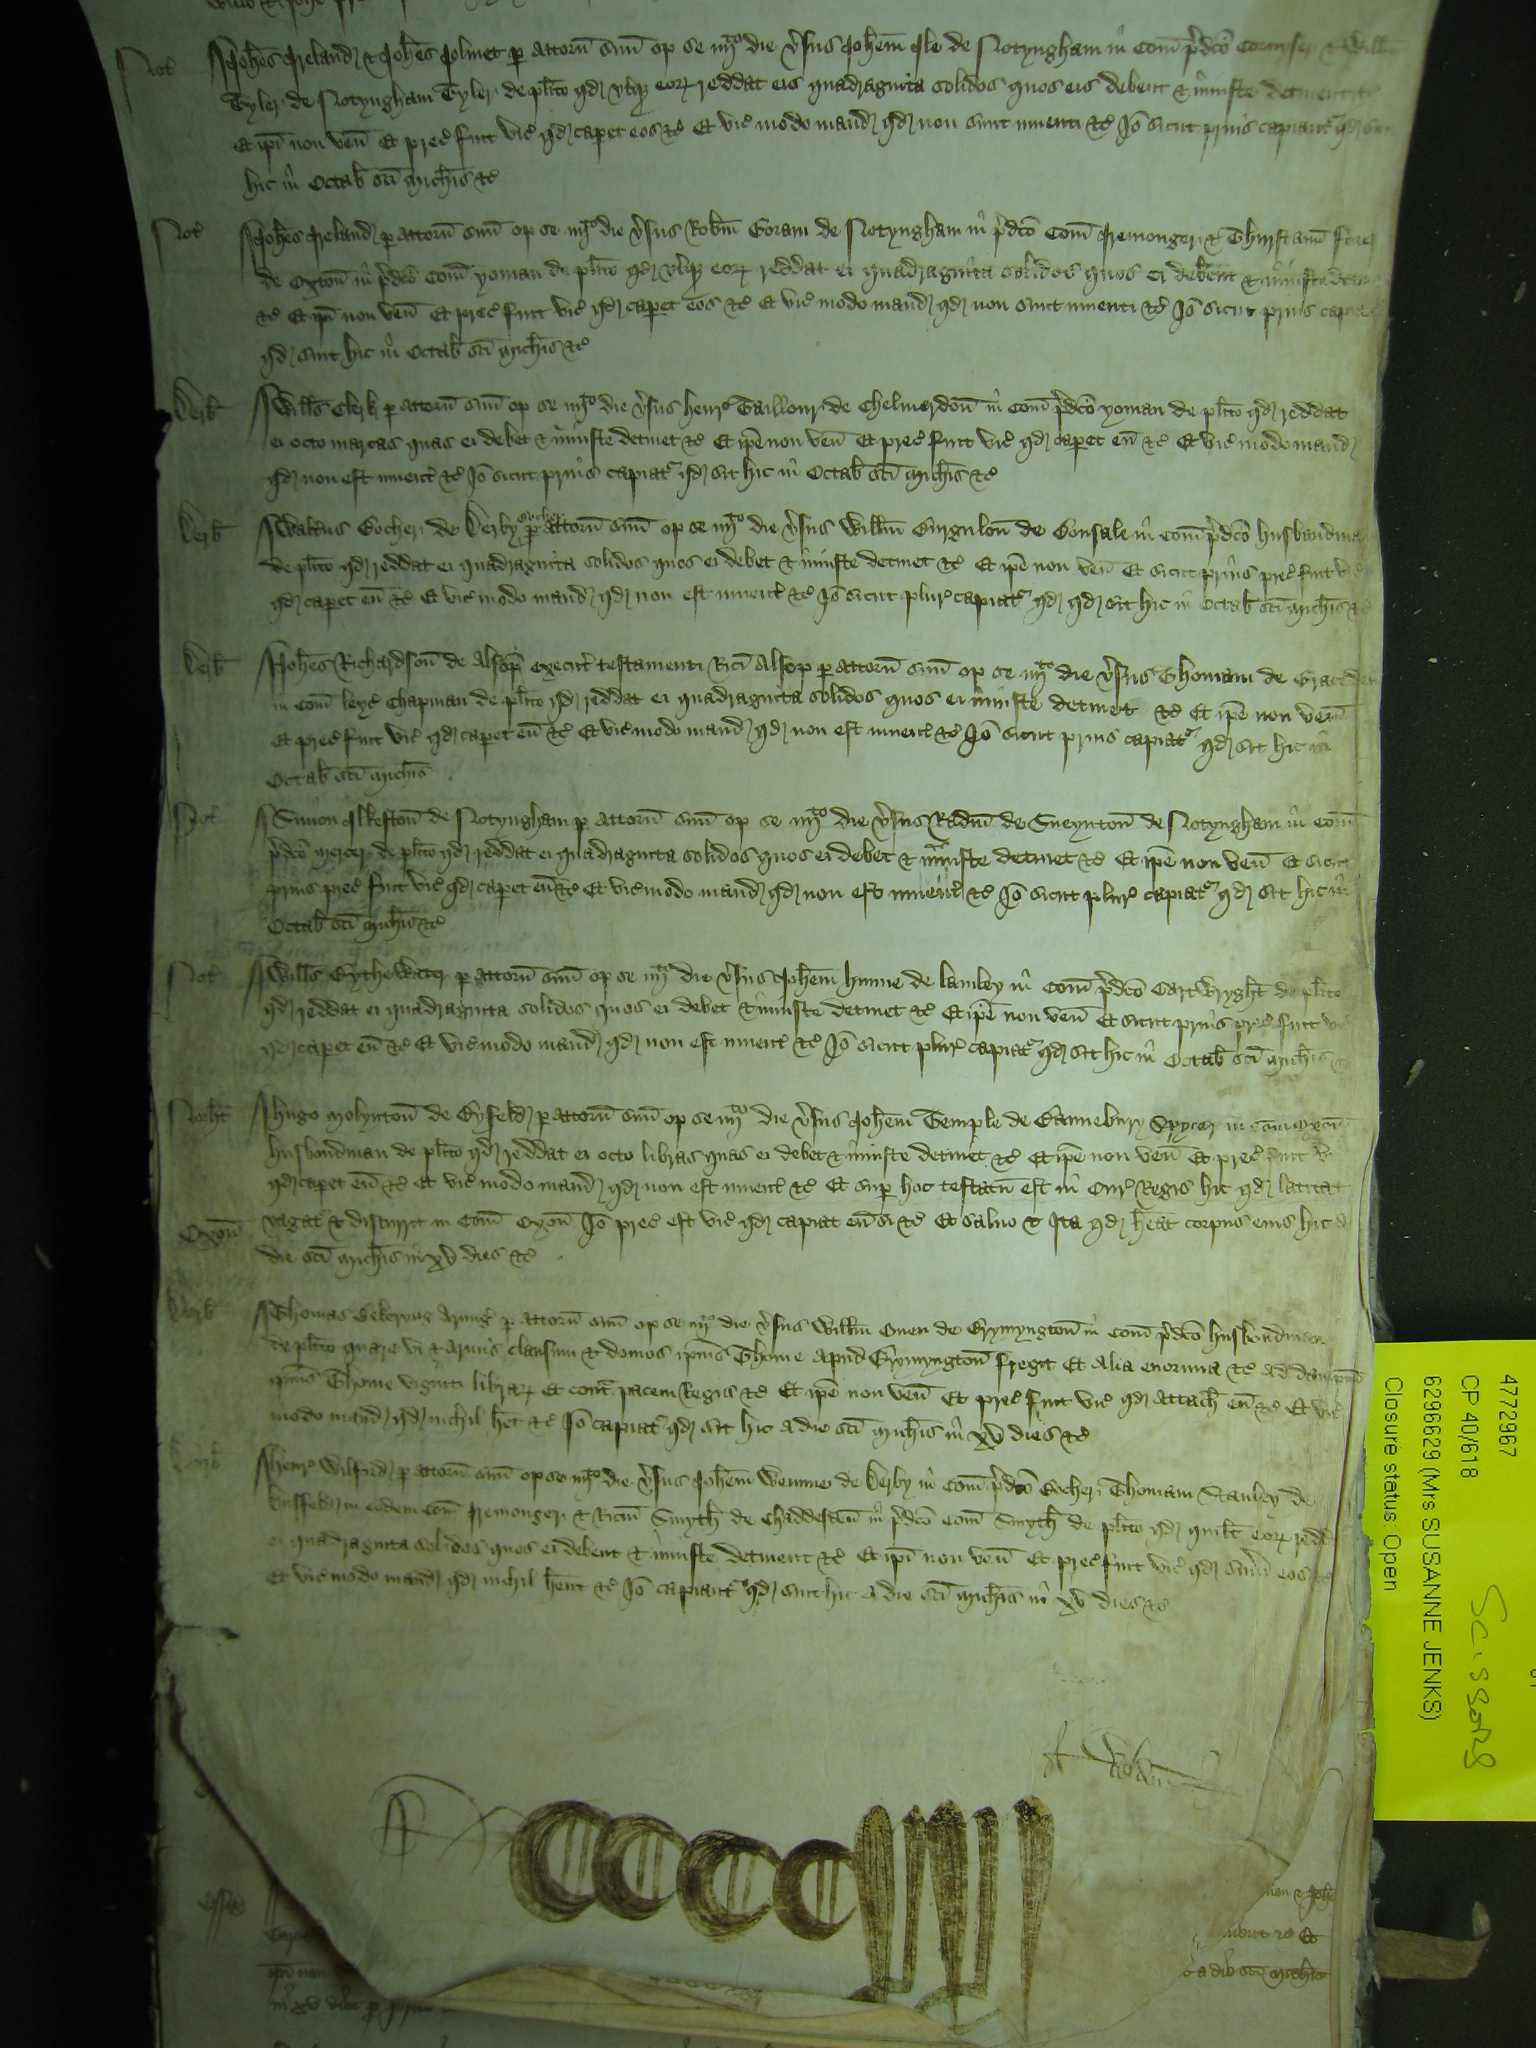 Not Joħes Ireland & Joħes Jolmet p attorñ suũ op se iiijto die v̾sus Joħem Ile de Notyngham in Com p̾dco Corviser & Willm
Tyler de Notyngham Tyler de plito qd utqz eoꝝ reddat eis quadraginta solidos quos eis debent & iniuste detinent &c
Et ip̃i non veñ Et prec̾ fuit vic̾ qd caperet eos &c Et vic̾ modo mand qd non sunt inventi &c Io sicut prius capiant̾ qd sint
hic in Octab sci Mich̃is &c
Not Joħes Ireland p attorñ suũ op se iiijto die v̾sus Rob̃tm Goram de Notyngham in p̾dco Com Iremonger & Thurstanũ
de Oxtoñ in p̾dco Com yoman de plito qd utqz eoꝝ reddat ei quadraginta solidos quos ei debent & iniuste detinent
&c Et ip̃i non veñ Et prec̾ fuit vic̾ qd caperet eos &c Et vic̾ modo mand qd non sunt inventi &c Io sicut prius capiant̾
qd sint hic in Octab sci Mich̃is &c
Derb Wills Clerk p attorñ suũ op se iiijto die v̾sus Henr̾ Taillour de Chelmerdoñ in Com p̾dco yoman de plito qd reddat
ei octo marcas quas ei debet & iniuste detinet &c Et ip̃e non veñ Et prec̾ fuit vic̾ qd caperet eũ &c Et vic̾ modo mand
qd non est invent̾ &c Io sicut prius capiat̾ qd sit hic in Octab sci Mich̃is &c
Derb Walt̾us Bocher de Derby bocher p attorñ suũ op se iiijto die v̾sus Willm Gurguloñ de Bonsale in Com p̾dco husbandman
de plito qd reddat ei quadraginta solidos quos ei debet & iniuste detinet &c Et ip̃e non veñ Et sicut prius prec̾ fuit vic̾
qd caperet eũ &c Et vic̾ modo mand qd non est invent̾ &c Io sicut plur̾ capiat̾ qd qd sit hic in Octab sci Mich̃is &c
Derb Joħes Richardsoñ de Alsop execut̾ testamenti Rici Alsop p attorñ suũ op se iiijto die v̾sus Thomam de
in Com Leyc̾ Chapman de plito qd reddat ei quadraginta solidos quos ei iniuste detinet &c Et ip̃e non veñ
Et prec̾ fuit vic̾ qd caperet eũ &c Et vic̾ modo mand qd non est invent̾ &c Io sicut prius capiat̾ qd sit hic in
Octab sci Mich̃is
Not Simon Ilkestoñ de Notyngham p attorñ suũ op se iiijto die v̾sus Radm de Sneyntoñ de Notyngham in Com
p̾dco mercer de plito qd reddat ei quadraginta solidos quos ei debet & iniuste detinet &c Et ip̃e non veñ Et sicut
prius prec̾ fuit vic̾ qd caperet eũ &c Et vic̾ modo mand qd non est invent̾ &c Io sicut plur̾ capiat̾ qd sit hic in
Octab sci Mich̃is &c
Not Wills Bythewater p attorñ suũ op se iiijto die v̾sus Joħem Hunne de Lambley in Com p̾dco Cartwryght de plito
qd reddat ei quadraginta solidos quos ei debet & iniuste detinet &c Et ip̃e non veñ Et sicut prius prec̾ fuit vic̾
qd caperet eũ &c Et vic̾ modo mand qd non est invent̾ &c Io sicut plur̾ capiat̾ qd sit hic in Octab sci Mich̃is
Norht Hugo Molyntoñ de Byfeld p attorñ suũ op se iiijto die v̾sus Joħem Temple de Bannebury Spycer in Com Oxoñ
husbondman de plito qd reddat ei octo libras quas ei debet & iniuste detinet &c Et ip̃e non veñ Et prec̾ fuit vic̾
qd caperet eũ &c Et vic̾ modo mand qd non est invent̾ &c Et sup hoc testatũ est in Cur̾ Regis hic qd latitat
Oxoñ vagat̾ & discurrit in Com Oxoñ Io prec̾ est vic̾ qd capiat eũ si &c Et salvo & Ita qd heat corpus eius hic a
die sci Mich̃is in xv dies &c
Derb Thomas Bekeryng Armig̾ p attorñ suũ op se iiijto die v̾sus Willm Owen de Brymyngtoñ in Com p̾dco husbondman
de plito quare vi & armis clausum & domos ipius Thome apud Brymyngtoñ fregit Et alia enormia &c Ad dampnũ
ipius Thome viginti libraꝝ Et cont̾ pacem Regis &c Et ip̃e non veñ Et prec̾ fuit vic̾ qd attach eũ &c Et vic̾
modo mand qd nichil het &c Io capiat̾ qd sit hic a die sci Mich̃is in xv dies &c
Derb Henr̾ Wilford p attorñ suũ op se iiijto die v̾sus Joħem Wemme de Derby in Com p̾dco Bocher Thomam Stanley de
Duffeld in eodem Com Iremonger & Ricm Smyth de Chaddesden in p̾dco Com Smyth de plito qd quilt eoꝝ redd
ei quadraginta solidos quos ei debent & iniuste detinent &c Et ip̃i non veñ Et prec̾ fuit vic̾ qd sum̾ eos &c
Et vic̾ modo mand qd nichil hent &c Io capiant̾ qd sint hic a die sci Mich̃is in xv dies &c
CCCC
Et
a die sci Mich̃is
in xv dies p
4772967
CP 40/618
6296629 (Mrs SUSANNE JENKS)
Closure status: Open
Scissors